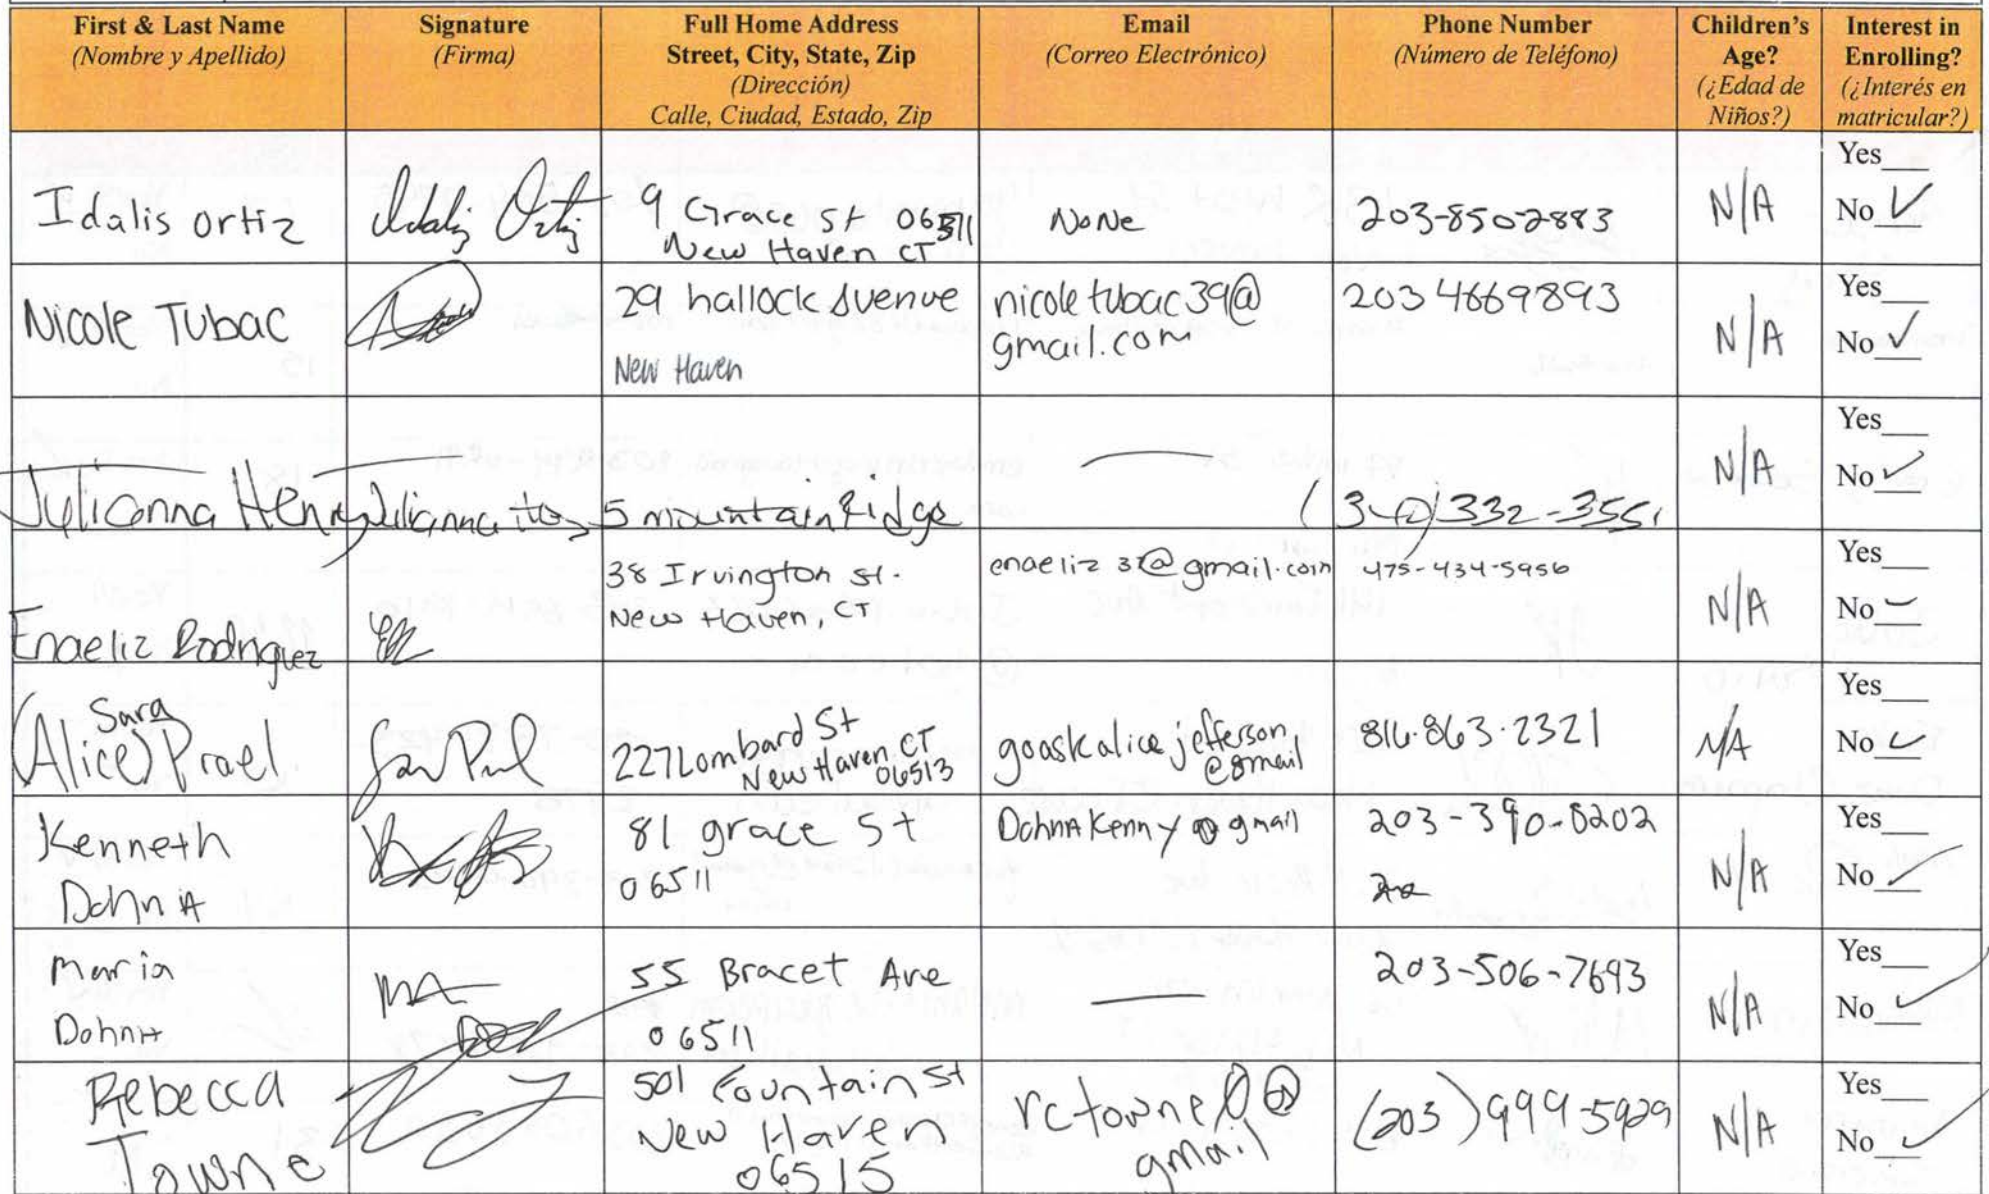 First & Last Name
(Nombre y Apellido)
Signature
(Firma)
Full Home Address
Street, City, State, Zip
(Dirección)
Calle, Ciudad, Estado, Zip
Email
(Correo Electrónico)
Phone Number
(Número de Teléfono)
Children's
Age?
(¿Edad de
Niños?)
Interest in
Enrolling?
(¿Interés en
matricular?)
Idalis Ortiz
Idalis Ortiz
9 Grace St 06511
New Haven CT
NoNe
203-850-2883
N/A
Yes__
No ✓
Nicole Tubac
29 hallock Avenue
New Haven
nicoletubac39@
gmail.com
203 4669893
N/A
Yes__
No ✓
Julianna Henry
Julianna
5 mountain Ridge
332-3551
N/A
Yes__
No ✓
Enaeliz Rodriguez
38 Irvington st.
New Haven, CT
@gmail.com
475-434-5956
N/A
Yes__
No ✓
Sara
(Alice) Prael
227 Lombard St
New Haven CT
06513
goaskalicejefferson
@gmail
816-863-2321
N/A
Yes__
No ✓
Kenneth
Dohna
81 grace St
06511
DohnaKenny@gmail
203-390-8202
N/A
Yes__
No ✓
Maria
Dohna
55 Bracet Ave
06511
203-506-7693
N/A
Yes__
No ✓
Rebecca
Towne
501 Fountain St
New Haven
06515
gmail
(203) 999-5929
N/A
Yes__
No ✓